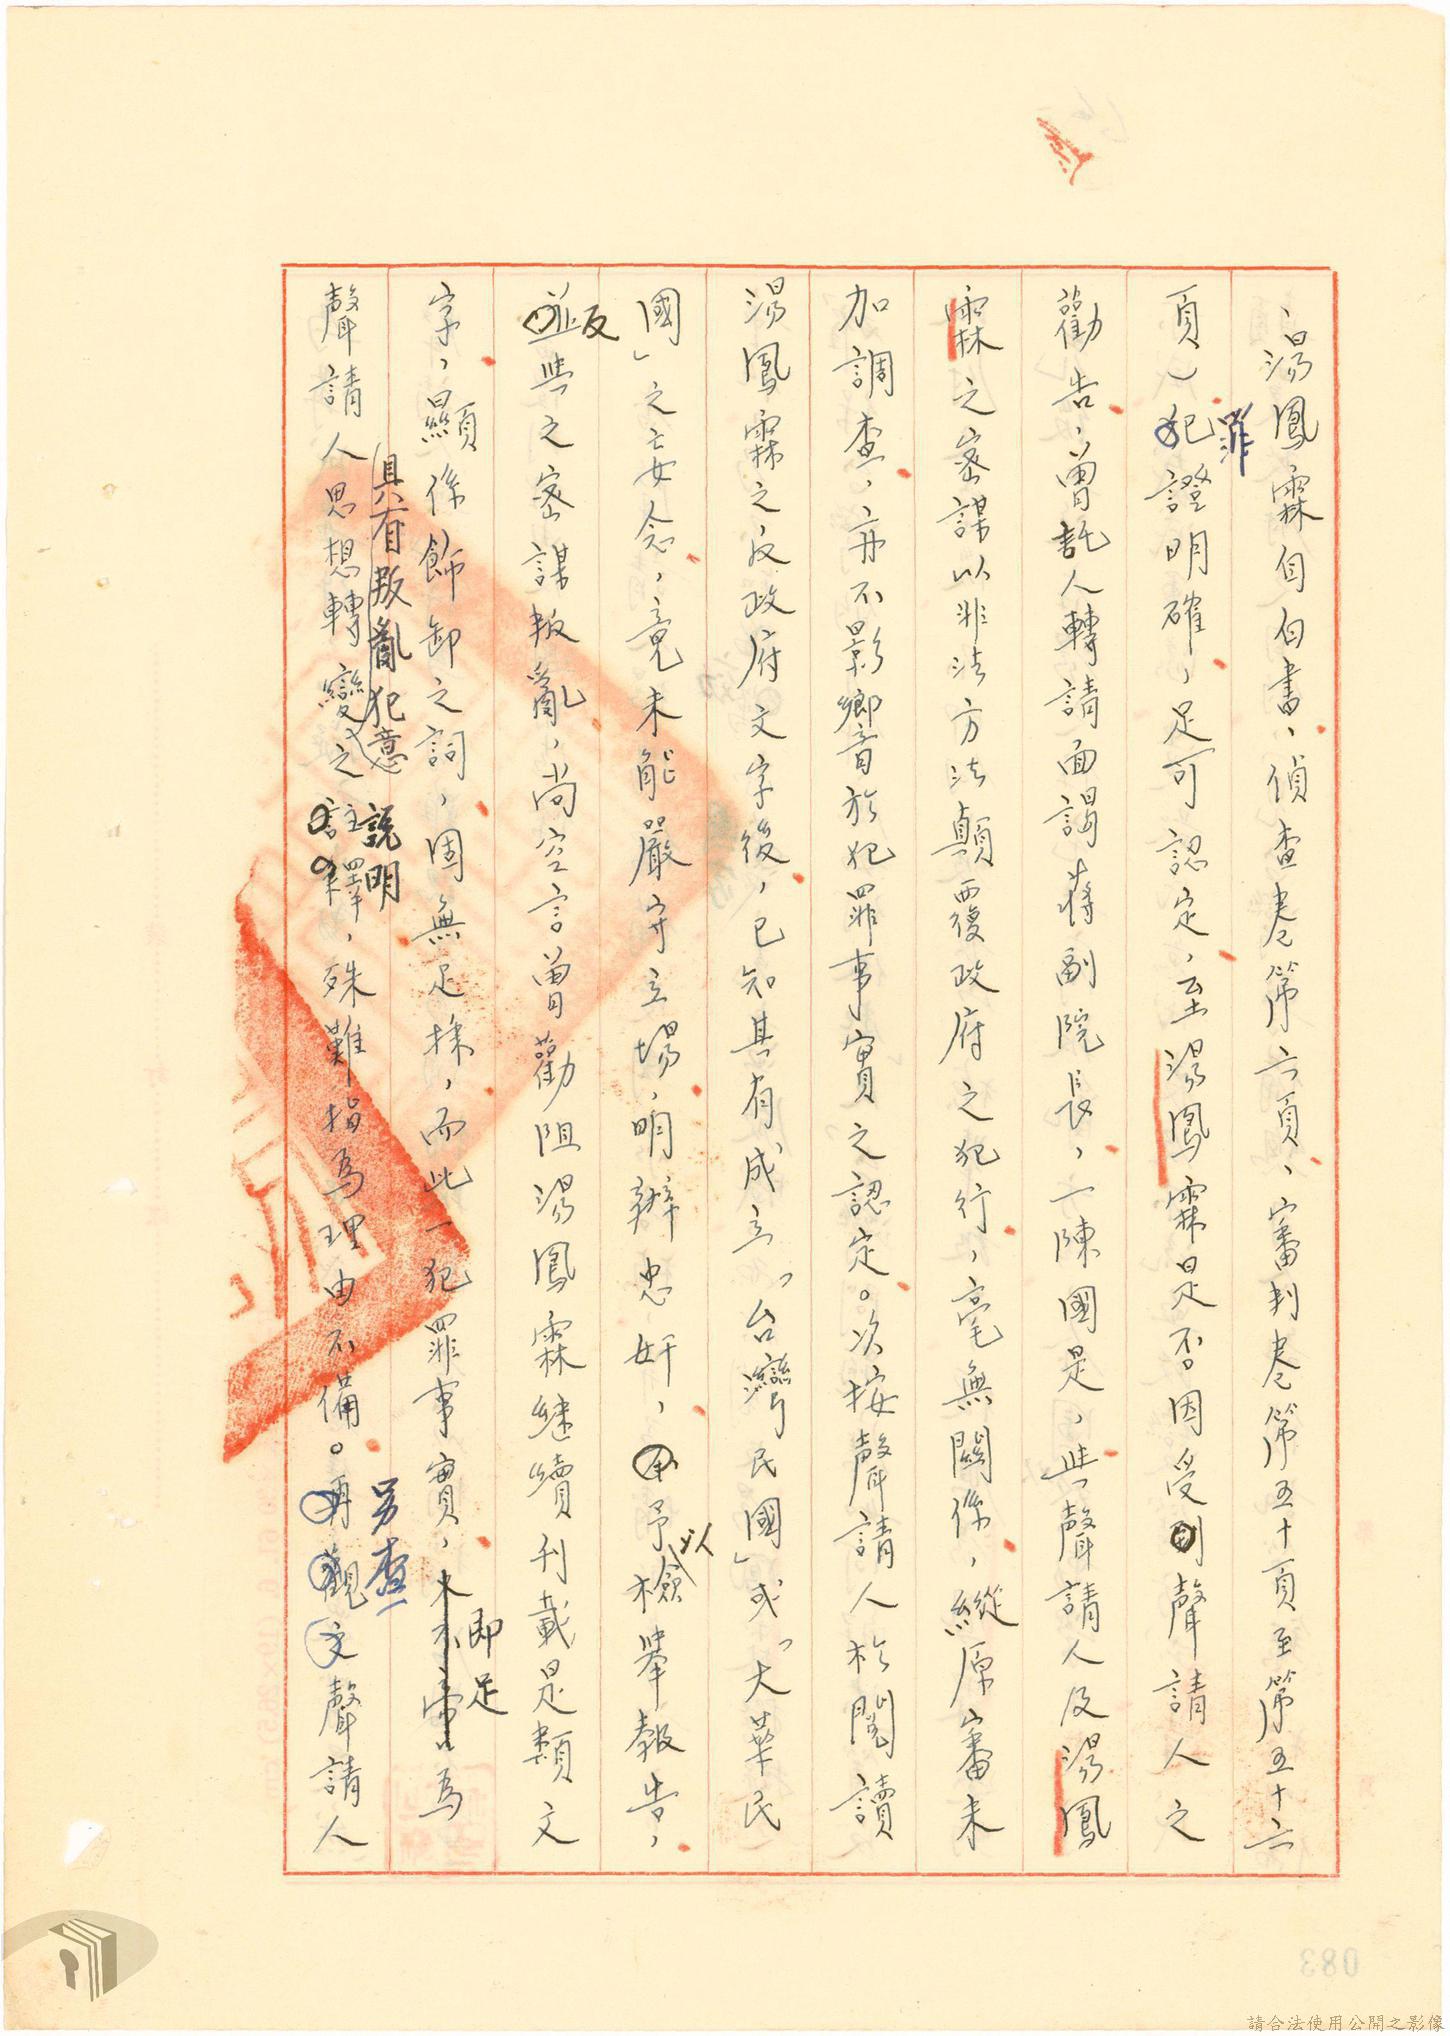 湯鳳霖自白書，偵查卷第六頁，審判卷第五十頁至第五十六
頁）犯罪證明確，足可認定，至湯鳳霖是否因受到聲請人之
勸告，曾託人轉請面謁蔣副院長，一陳國是，與聲請人及湯鳳
霖之密謀以非法方法顛覆政府之犯行，毫無關係，縱原審未
加調查，亦不影嚮音於犯罪事實之認定。次按聲請人於閱讀
湯鳳霖之反政府文字後，已知其有成立「台灣民國」或「大華民
國」之妄念，竟未能嚴守立場，明辨忠奸，予以檢舉報告，
反並與之密謀叛亂，尚空言曾勸阻湯鳳霖繼續刊載是類文
字，顯係飾卸之詞，固無足採，而此一犯罪事實，即足為
聲請人思想轉變具有叛亂犯意之註釋說明，殊難指為理由不備。再觀另查文聲請人
083
請合法使用公開之影像